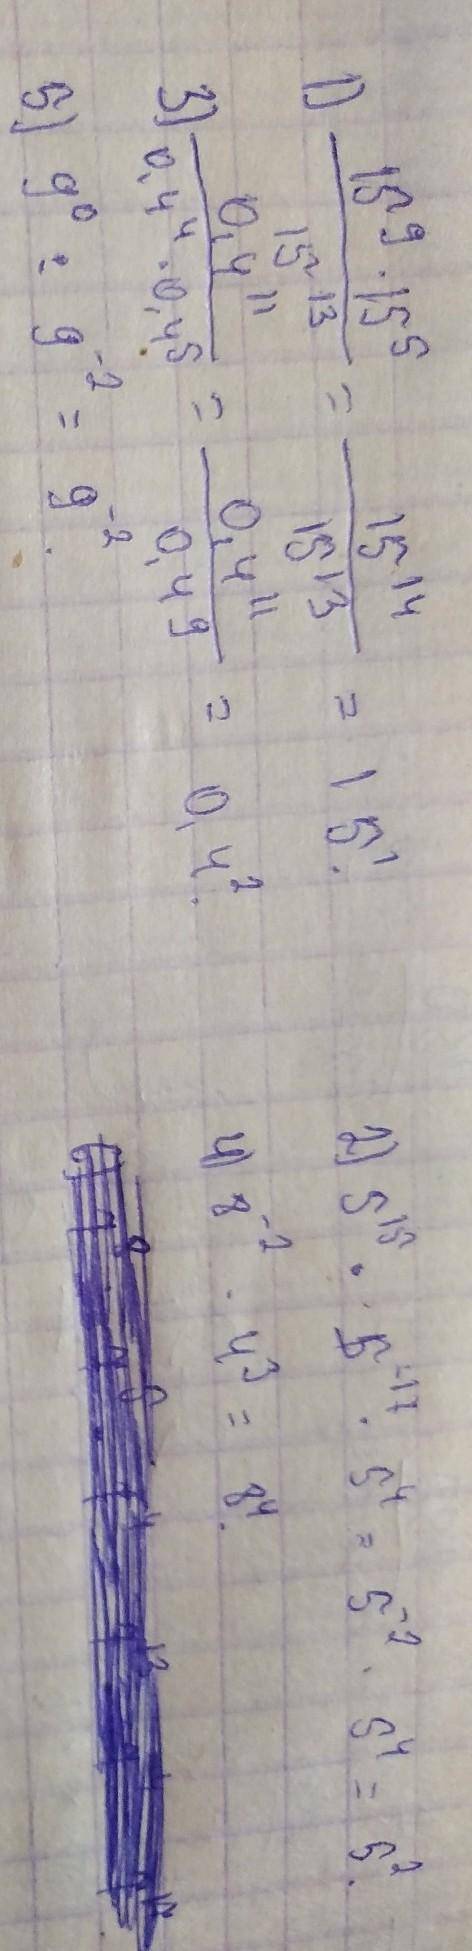 1) \frac{15^9 \cdot 15^5}{15^{13}} = \frac{15^{14}}{15^{13}} = 15^1.
2) 5^{15} \cdot 5^{-17} \cdot 5^4 = 5^{-2} \cdot 5^4 = 5^2.
3) \frac{0,4^{11}}{0,4^4 \cdot 0,4^5} = \frac{0,4^{11}}{0,4^9} = 0,4^2.
4) 8^{-2} \cdot 4^3 = 8^4.
5) 9^0 : 9^{-2} = 9^{-2}.